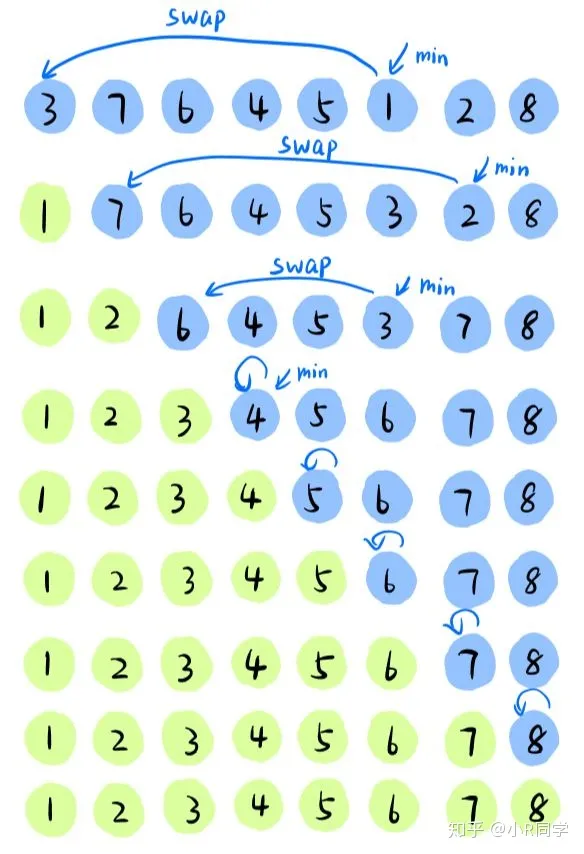 swap
min
3 7 6 4 5 1 2 8
swap
min
1 7 6 4 5 3 2 8
swap
min
1 2 6 4 5 3 7 8
min
1 2 3 4 5 6 7 8
1 2 3 4 5 6 7 8
1 2 3 4 5 6 7 8
1 2 3 4 5 6 7 8
1 2 3 4 5 6 7 8
1 2 3 4 5 6 7 8
知乎 @小R同学